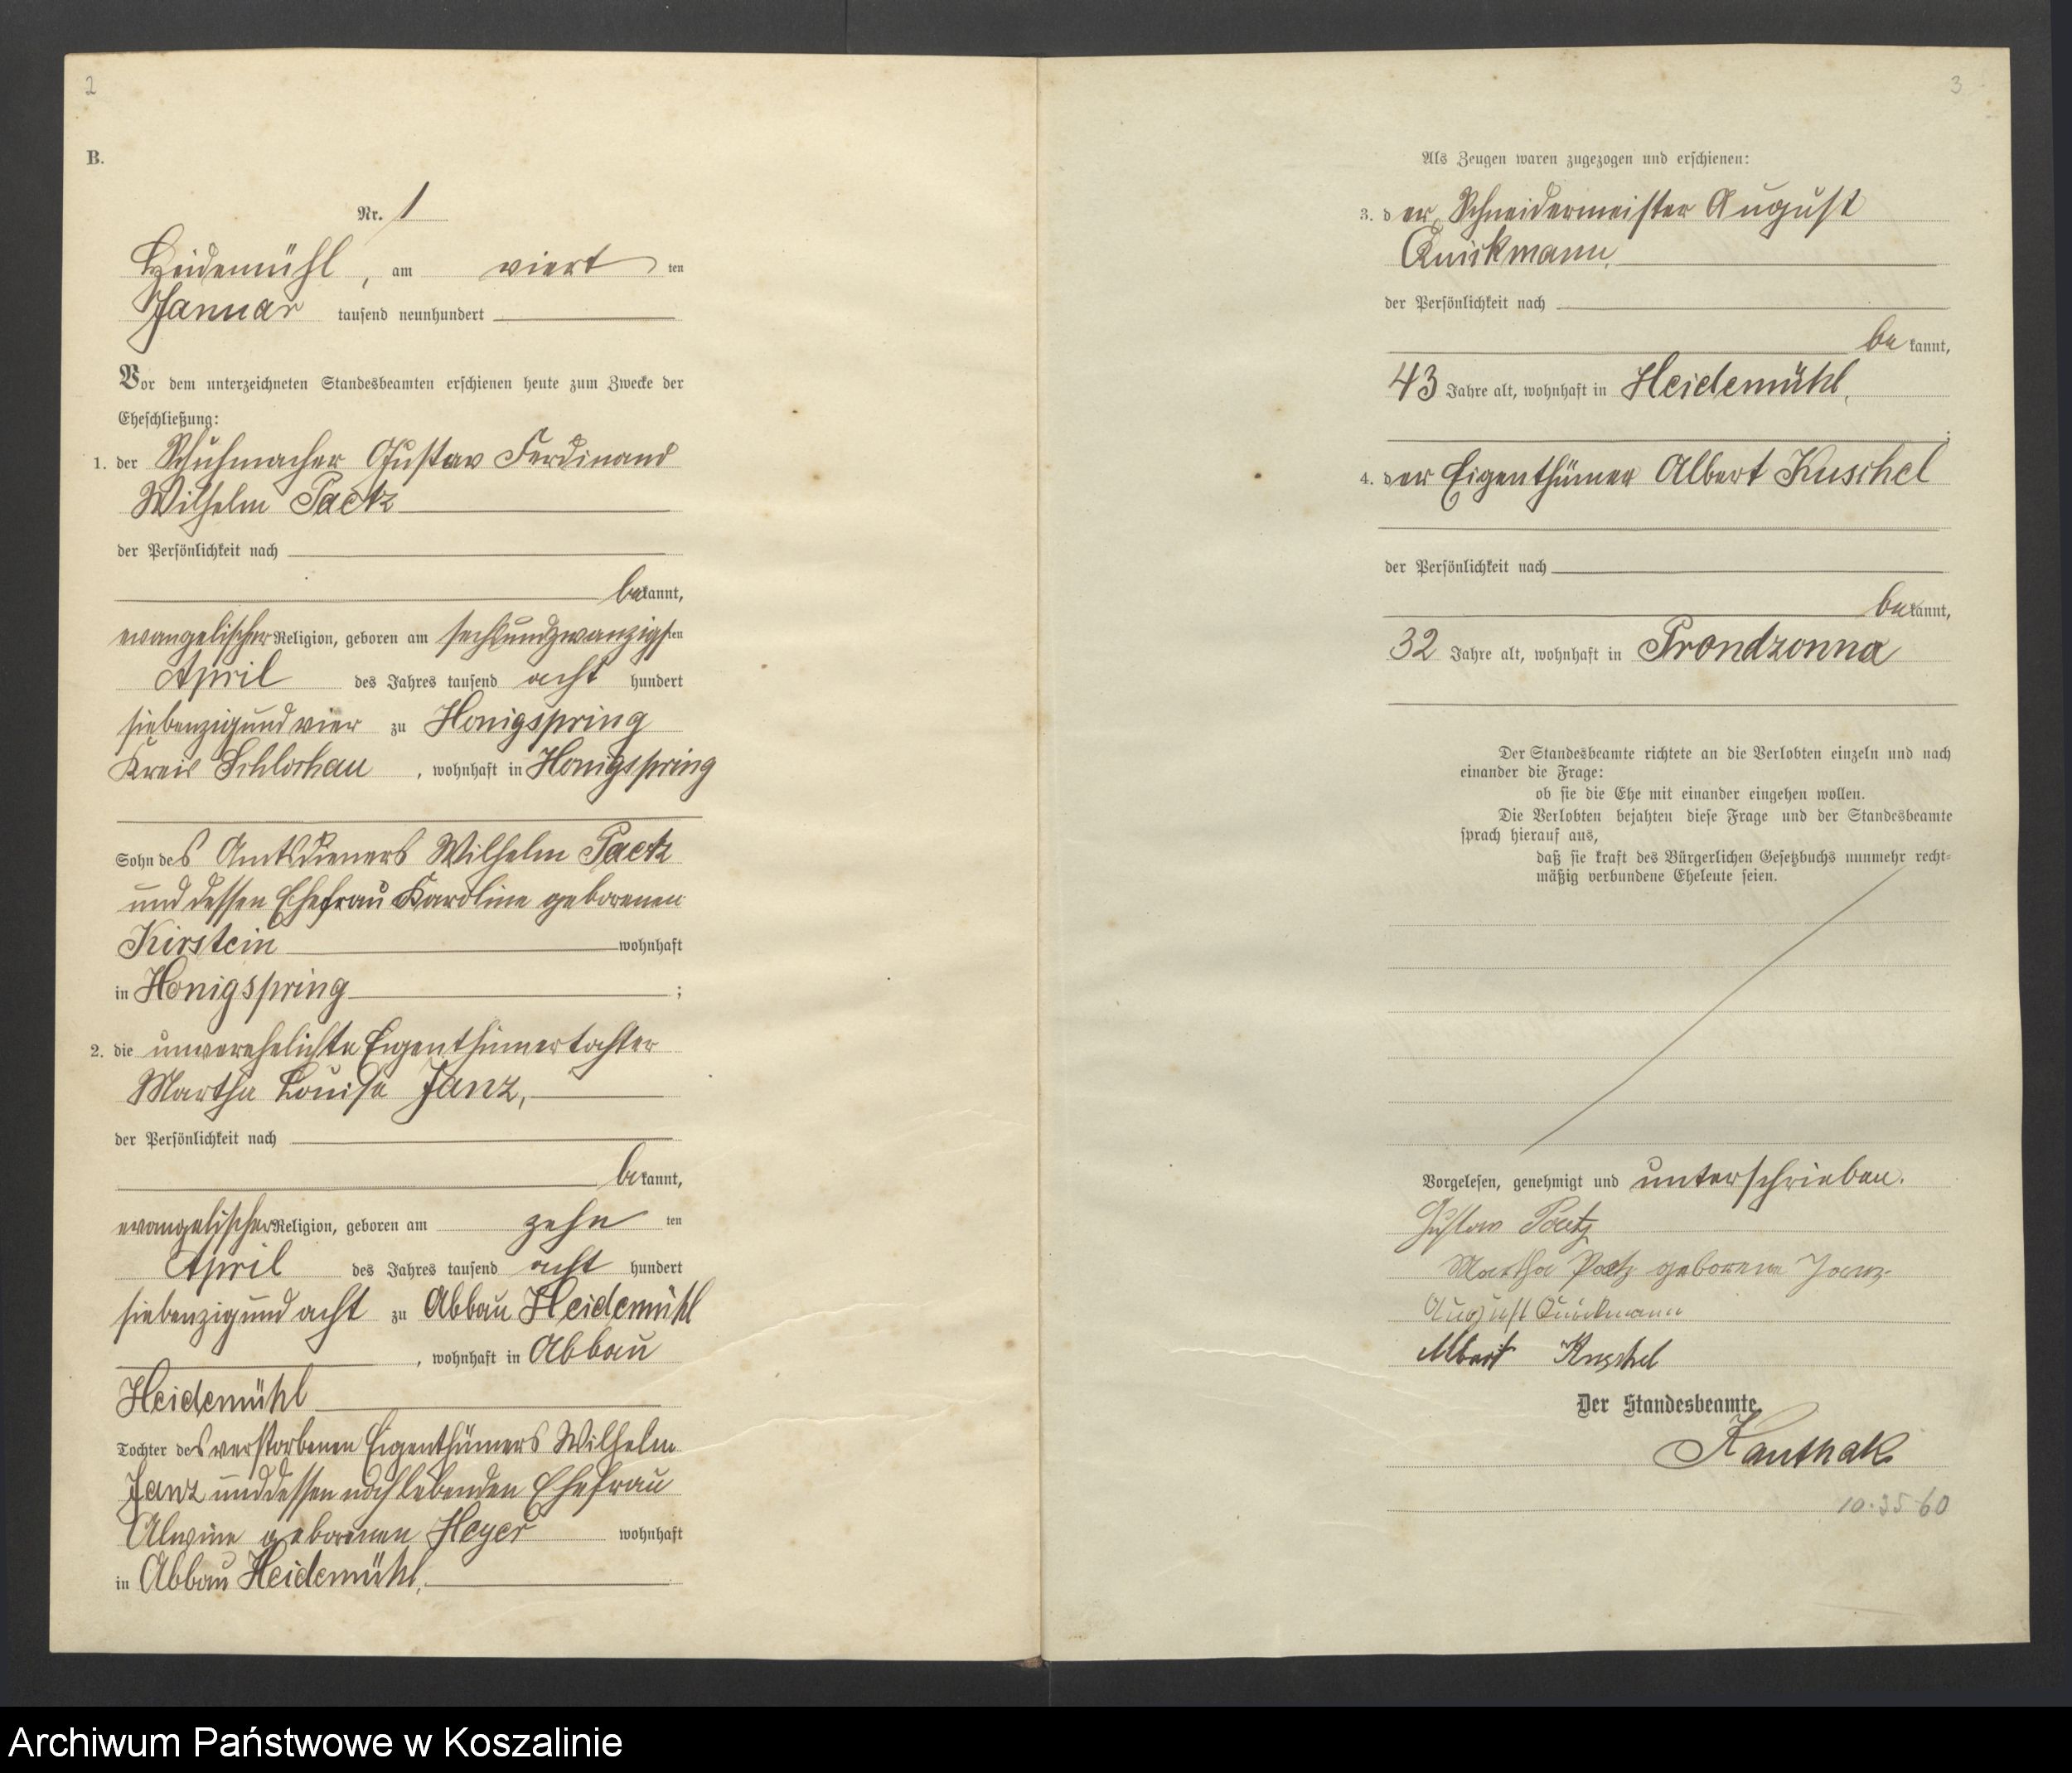 2
B.
Nr. 1
Heidemühl, am viert ten
Januar tausend neunhundert
Vor dem unterzeichneten Standesbeamten erschienen heute zum Zwecke der
Eheschließung:
1. der Schuhmacher Gustav Ferdinand
Wilhelm Paetz
der Persönlichkeit nach
bekannt,
evangelischer Religion, geboren am sechsundzwanzigsten
April des Jahres tausend acht hundert
siebenzigundvier zu Honigspring
Kreis Schlochau, wohnhaft in Honigspring
Sohn des Amtsdieners Wilhelm Paetz
und dessen Ehefrau Karoline geborenen
Kirstein wohnhaft
in Honigspring ;
2. die unverehelichte Eigenthümertochter
Martha Louise Janz,
der Persönlichkeit nach
bekannt,
evangelischer Religion, geboren am zehn ten
April des Jahres tausend acht hundert
siebenzigundacht zu Abbau Heidemühl
, wohnhaft in Abbau
Heidemühl
Tochter des verstorbenen Eigenthümers Wilhelm
Janz und dessen noch lebenden Ehefrau
Alwine geborenen Heyer wohnhaft
in Abbau Heidemühl.
3
Als Zeugen waren zugezogen und erschienen:
3. der Schneidermeister August
Quickmann,
der Persönlichkeit nach
bekannt,
43 Jahre alt, wohnhaft in Heidemühl,
;
4. der Eigenthümer Albert Kuschel
der Persönlichkeit nach
bekannt,
32 Jahre alt, wohnhaft in Prondzonna
Der Standesbeamte richtete an die Verlobten einzeln und nach
einander die Frage:
ob sie die Ehe mit einander eingehen wollen.
Die Verlobten bejahten diese Frage und der Standesbeamte
sprach hierauf aus,
daß sie kraft des Bürgerlichen Gesetzbuchs nunmehr recht-
mäßig verbundene Eheleute seien.
Vorgelesen, genehmigt und unterschrieben.
Gustav Paetz
Martha Paetz geborene Janz
August Quickmann
Albert Kuschel
Der Standesbeamte
Kanthak
10.35 60
Archiwum Państwowe w Koszalinie